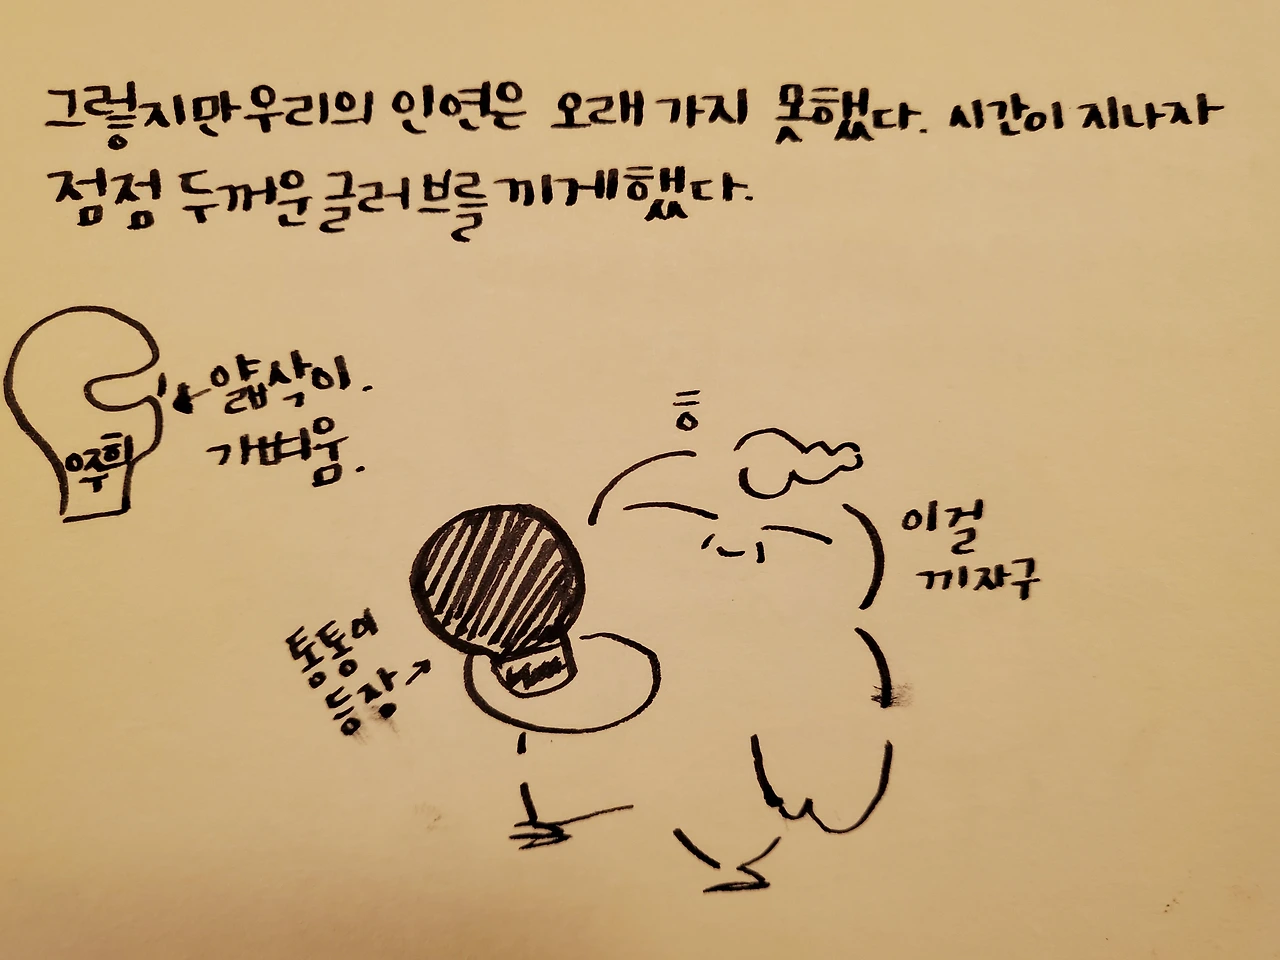 그렇지만 우리의 인연은 오래 가지 못했다. 시간이 지나자
점점 두꺼운 글러브를 끼게했다.
얇삭이.
가벼움.
주희
흥
이걸
끼자구
통통이
등장